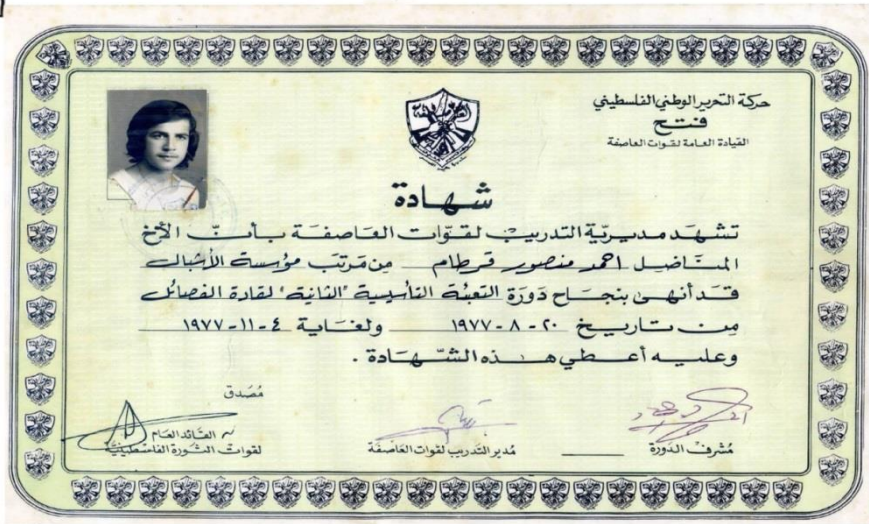 حركة التحرير الوطني الفلسطيني
فتح
القيادة العامة لقوات العاصفة
العاصفة
شهادة
تشهد مديرية التدريب لقوات العاصفة بأن الأخ
المناضل احمد منصور قرطام من مرتب مؤسسة الأشبال
قد أنهى بنجاح دورة التعبئة التأسيسية "الثانية" لقادة الفصائل
من تاريخ ٢٠-٨-١٩٧٧ ولغاية ٤-١١-١٩٧٧
وعليه أعطي هذه الشهادة .
مصدق
القائد العام
لقوات الثورة الفلسطينية
مدير التدريب لقوات العاصفة
مشرف الدورة